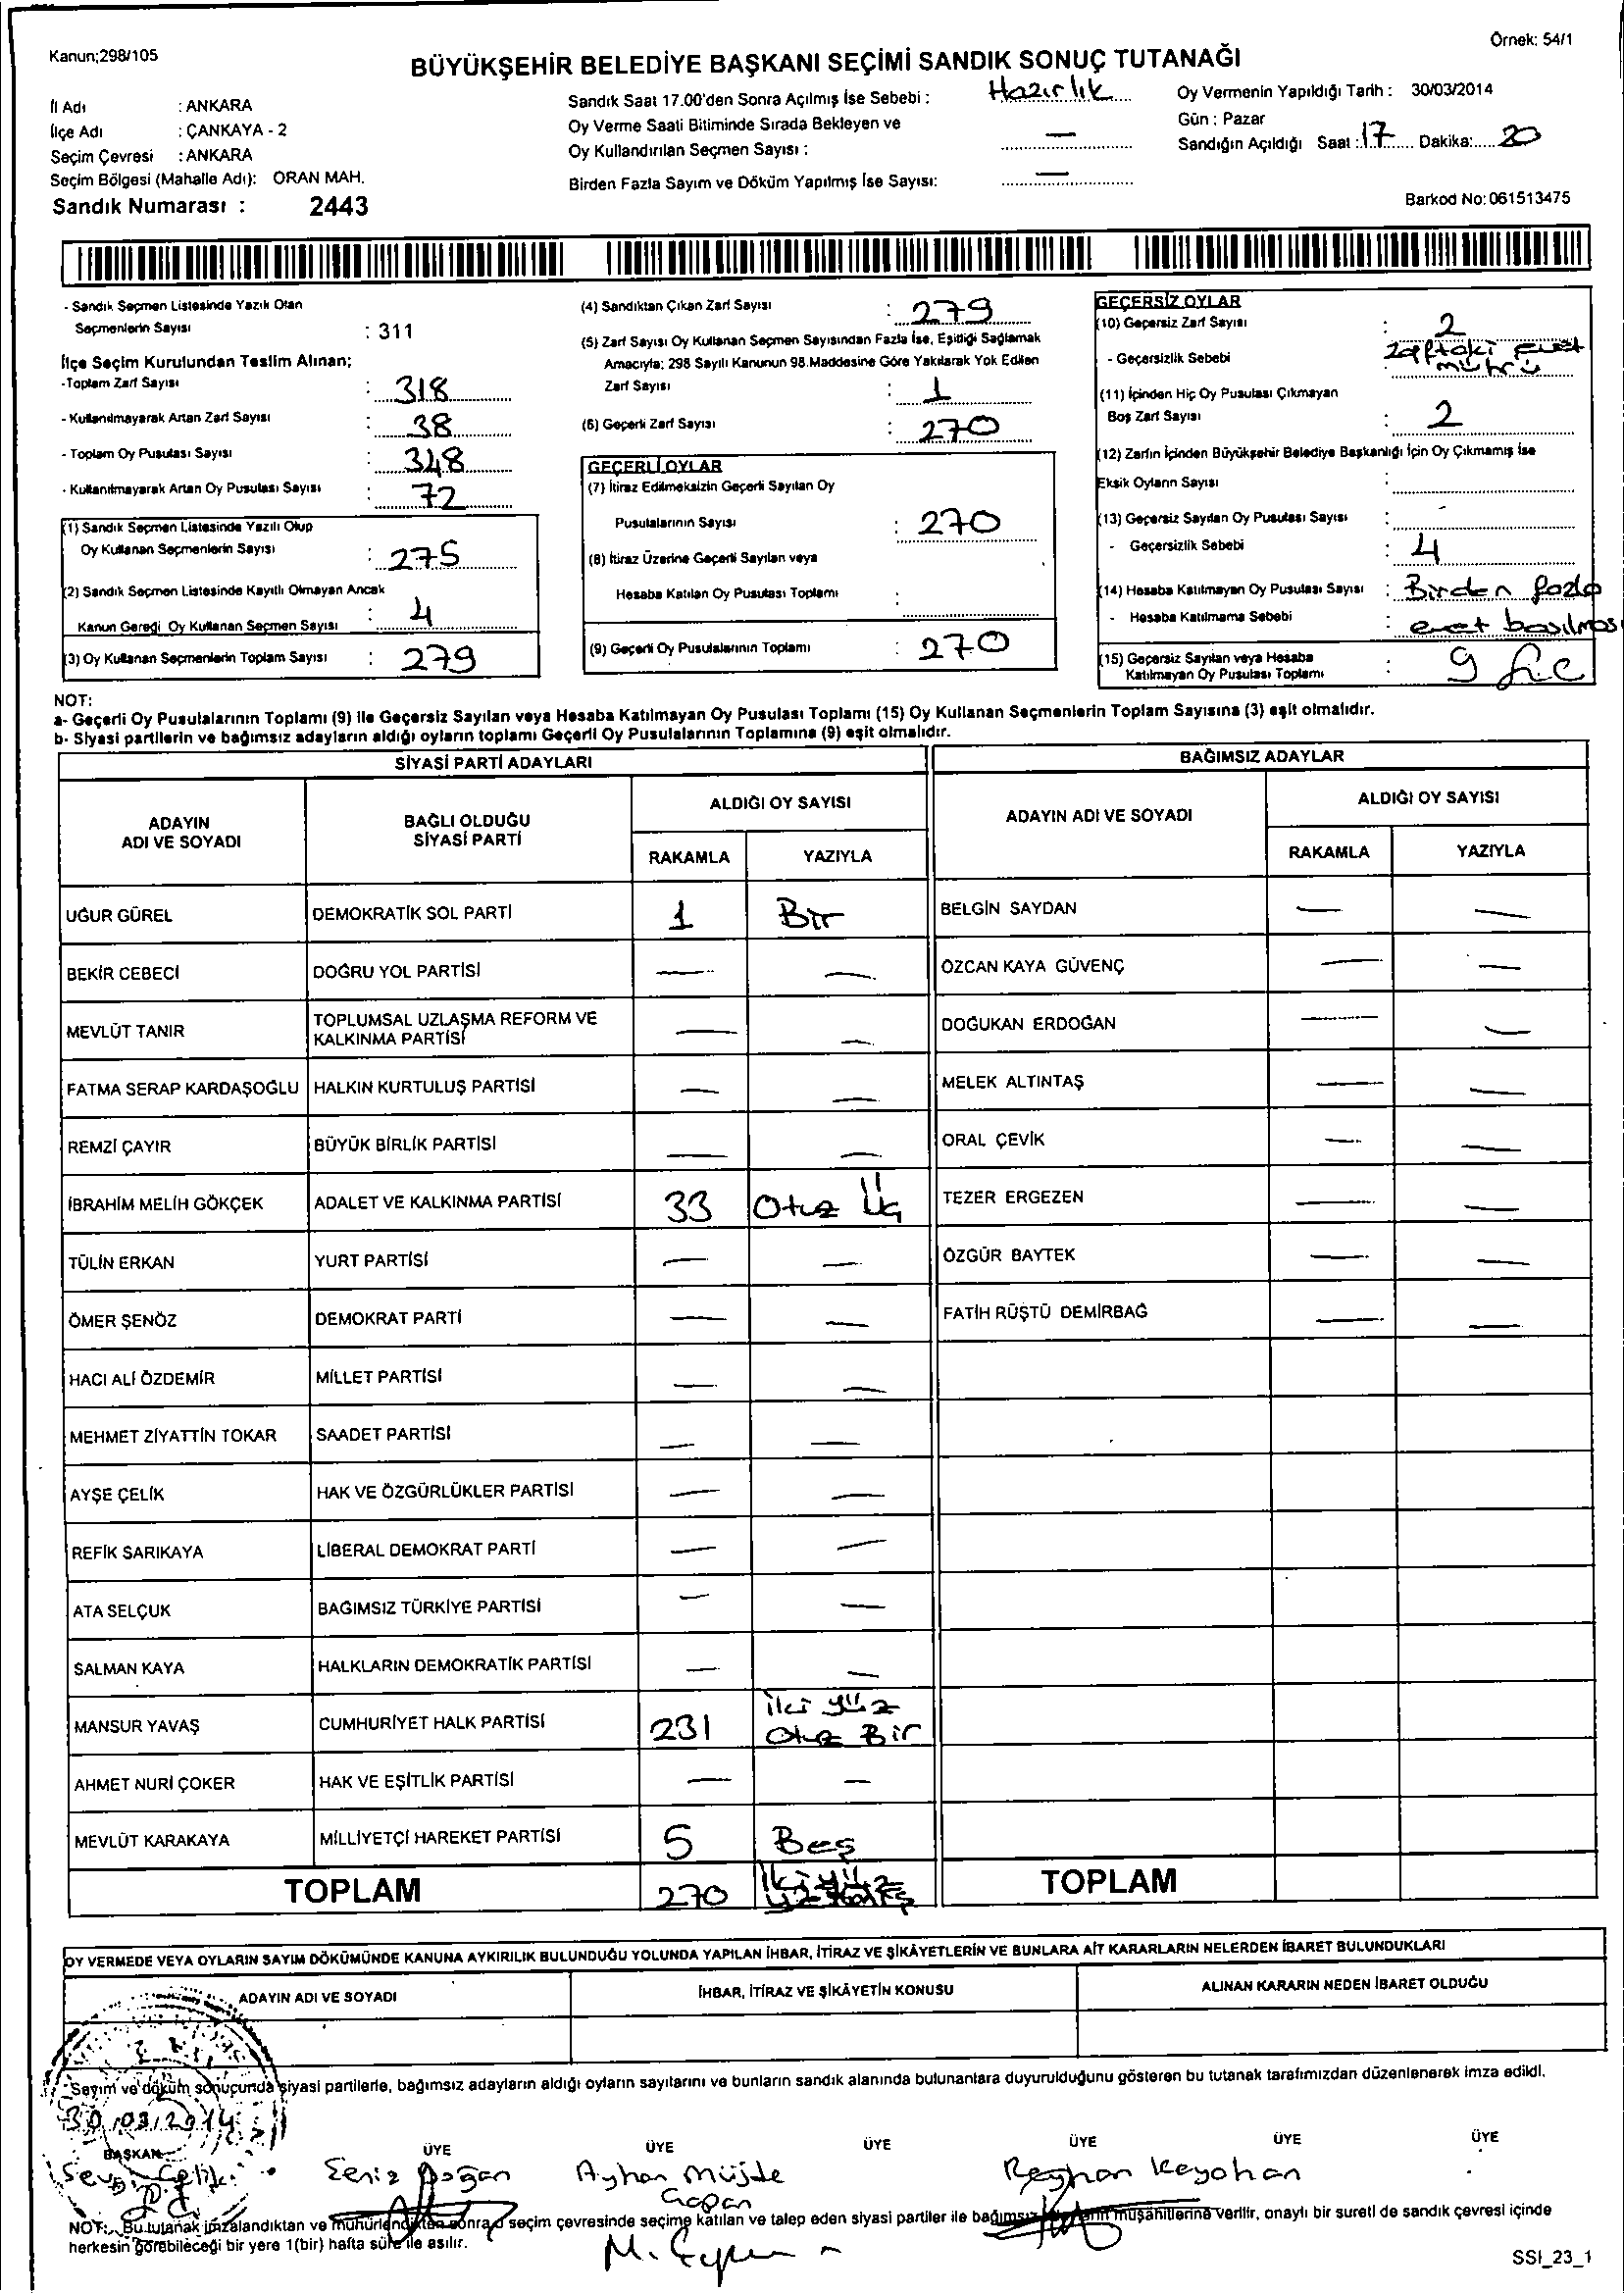 Kanun;298/105
Örnek: 54/1
BÜYÜKŞEHİR BELEDİYE BAŞKANI SEÇİMİ SANDIK SONUÇ TUTANAĞI
İl Adı : ANKARA
İlçe Adı : ÇANKAYA - 2
Seçim Çevresi : ANKARA
Seçim Bölgesi (Mahalle Adı): ORAN MAH.
Sandık Numarası : 2443
Sandık Saat 17.00'den Sonra Açılmış İse Sebebi : Hazırlık
Oy Verme Saati Bitiminde Sırada Bekleyen ve
Oy Kullandırılan Seçmen Sayısı : —
Birden Fazla Sayım ve Döküm Yapılmış İse Sayısı: —
Oy Vermenin Yapıldığı Tarih : 30/03/2014
Gün : Pazar
Sandığın Açıldığı Saat : 17 Dakika: 20
Barkod No: 061513475
- Sandık Seçmen Listesinde Yazılı Olan
Seçmenlerin Sayısı : 311
İlçe Seçim Kurulundan Teslim Alınan;
-Toplam Zarf Sayısı : 318
- Kullanılmayarak Artan Zarf Sayısı : 38
- Toplam Oy Pusulası Sayısı : 348
- Kullanılmayarak Artan Oy Pusulası Sayısı : 72
(1) Sandık Seçmen Listesinde Yazılı Olup
Oy Kullanan Seçmenlerin Sayısı : 275
(2) Sandık Seçmen Listesinde Kayıtlı Olmayan Ancak
Kanun Gereği Oy Kullanan Seçmen Sayısı : 4
(3) Oy Kullanan Seçmenlerin Toplam Sayısı : 279
(4) Sandıktan Çıkan Zarf Sayısı : 279
(5) Zarf Sayısı Oy Kullanan Seçmen Sayısından Fazla İse, Eşitliği Sağlamak
Amacıyla; 298 Sayılı Kanunun 98.Maddesine Göre Yakılarak Yok Edilen
Zarf Sayısı : 1
(6) Geçerli Zarf Sayısı : 270
GEÇERLİ OYLAR
(7) İtiraz Edilmeksizin Geçerli Sayılan Oy
Pusulalarının Sayısı : 270
(8) İtiraz Üzerine Geçerli Sayılan veya
Hesaba Katılan Oy Pusulası Toplamı :
(9) Geçerli Oy Pusulalarının Toplamı : 270
GEÇERSİZ OYLAR
(10) Geçersiz Zarf Sayısı : 2
- Geçersizlik Sebebi : Zarftaki Evet
mührü
(11) İçinden Hiç Oy Pusulası Çıkmayan
Boş Zarf Sayısı : 2
(12) Zarfın İçinden Büyükşehir Belediye Başkanlığı İçin Oy Çıkmamış İse
Eksik Oyların Sayısı :
(13) Geçersiz Sayılan Oy Pusulası Sayısı :
- Geçersizlik Sebebi : 4
(14) Hesaba Katılmayan Oy Pusulası Sayısı : Birden fazla
- Hesaba Katılmama Sebebi : evet basılması
(15) Geçersiz Sayılan veya Hesaba
Katılmayan Oy Pusulası Toplamı : 9
NOT:
a- Geçerli Oy Pusulalarının Toplamı (9) ile Geçersiz Sayılan veya Hesaba Katılmayan Oy Pusulası Toplamı (15) Oy Kullanan Seçmenlerin Toplam Sayısına (3) eşit olmalıdır.
b- Siyasi partilerin ve bağımsız adayların aldığı oyların toplamı Geçerli Oy Pusulalarının Toplamına (9) eşit olmalıdır.
SİYASİ PARTİ ADAYLARI
ADAYIN
ADI VE SOYADI
BAĞLI OLDUĞU
SİYASİ PARTİ
ALDIĞI OY SAYISI
RAKAMLA YAZIYLA
UĞUR GÜREL DEMOKRATİK SOL PARTİ 1 Bir
BEKİR CEBECİ DOĞRU YOL PARTİSİ — —
MEVLÜT TANIR TOPLUMSAL UZLAŞMA REFORM VE
KALKINMA PARTİSİ — —
FATMA SERAP KARDAŞOĞLU HALKIN KURTULUŞ PARTİSİ — —
REMZİ ÇAYIR BÜYÜK BİRLİK PARTİSİ — —
İBRAHİM MELİH GÖKÇEK ADALET VE KALKINMA PARTİSİ 33 Otuz Üç
TÜLİN ERKAN YURT PARTİSİ — —
ÖMER ŞENÖZ DEMOKRAT PARTİ — —
HACI ALİ ÖZDEMİR MİLLET PARTİSİ — —
MEHMET ZİYATTİN TOKAR SAADET PARTİSİ — —
AYŞE ÇELİK HAK VE ÖZGÜRLÜKLER PARTİSİ — —
REFİK SARIKAYA LİBERAL DEMOKRAT PARTİ — —
ATA SELÇUK BAĞIMSIZ TÜRKİYE PARTİSİ — —
SALMAN KAYA HALKLARIN DEMOKRATİK PARTİSİ — —
MANSUR YAVAŞ CUMHURİYET HALK PARTİSİ 231 İki yüz
Otuz Bir
AHMET NURİ ÇOKER HAK VE EŞİTLİK PARTİSİ — —
MEVLÜT KARAKAYA MİLLİYETÇİ HAREKET PARTİSİ 5 Beş
TOPLAM 270 İki yüz
BAĞIMSIZ ADAYLAR
ADAYIN ADI VE SOYADI
ALDIĞI OY SAYISI
RAKAMLA YAZIYLA
BELGİN SAYDAN — —
ÖZCAN KAYA GÜVENÇ — —
DOĞUKAN ERDOĞAN — —
MELEK ALTINTAŞ — —
ORAL ÇEVİK — —
TEZER ERGEZEN — —
ÖZGÜR BAYTEK — —
FATİH RÜŞTÜ DEMİRBAĞ — —
TOPLAM
OY VERMEDE VEYA OYLARIN SAYIM DÖKÜMÜNDE KANUNA AYKIRILIK BULUNDUĞU YOLUNDA YAPILAN İHBAR, İTİRAZ VE ŞİKÂYETLERİN VE BUNLARA AİT KARARLARIN NELERDEN İBARET BULUNDUKLARI
ADAYIN ADI VE SOYADI İHBAR, İTİRAZ VE ŞİKÂYETİN KONUSU ALINAN KARARIN NEDEN İBARET OLDUĞU
Sayım ve döküm sonucunda siyasi partilerle, bağımsız adayların aldığı oyların sayılarını ve bunların sandık alanında bulunanlara duyurulduğunu gösteren bu tutanak tarafımızdan düzenlenerek imza edildi.
30/03/2014
BAŞKAN ÜYE ÜYE ÜYE ÜYE ÜYE ÜYE
Doğan Ayhan Müjde Reyhan Keyohan
NOT: Bu tutanak imzalandıktan ve mühürlendikten sonra seçim çevresinde seçime katılan ve talep eden siyasi partiler ile bağımsız müşahitlerine verilir, onaylı bir sureti de sandık çevresi içinde
herkesin görebileceği bir yere 1(bir) hafta süre ile asılır.
SSI_23_1